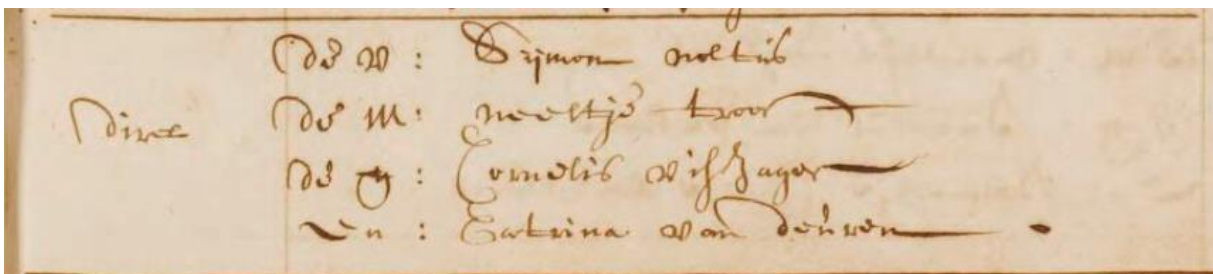 de v: Sijmon noltus
de M: neeltje troost
Dirck de g: Cornelis visschager
en: Catrina van deuren